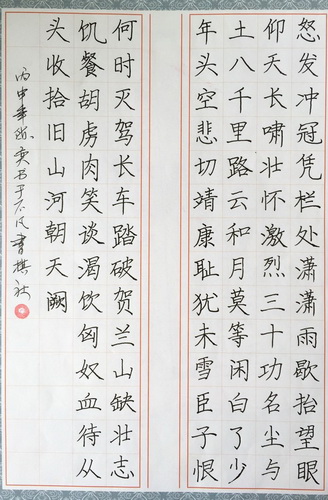 怒发冲冠凭栏处潇潇雨歇抬望眼
仰天长啸壮怀激烈三十功名尘与
土八千里路云和月莫等闲白了少
年头空悲切靖康耻犹未雪臣子恨
何时灭驾长车踏破贺兰山缺壮志
饥餐胡虏肉笑谈渴饮匈奴血待从
头收拾旧山河朝天阙
丙申年奕书于不凡書棋社